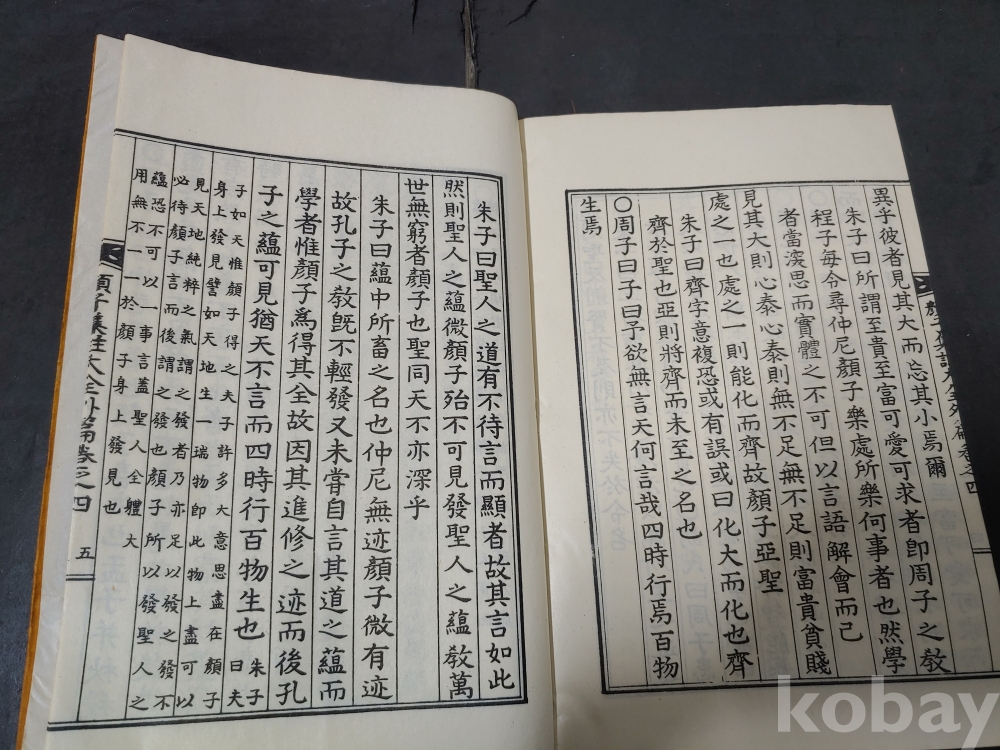 異乎彼者見其大而忘其小焉爾
朱子曰所謂至貴至富可愛可求者即周子之教
程子每令尋仲尼顏子樂處所樂何事者也然學
者當深思而實體之不可但以言語解會而已
見其大則心泰心泰則無不足無不足則富貴貧賤
處之一也處之一則能化而齊故顏子亞聖
朱子曰齊字意複恐或有誤或曰化大而化也齊
齊於聖也亞則將齊而未至之名也
○周子曰子曰予欲無言天何言哉四時行焉百物
生焉
朱子曰聖人之道有不待言而顯者故其言如此
然則聖人之蘊微顏子殆不可見發聖人之蘊教萬
世無窮者顏子也聖同天不亦深乎
朱子曰蘊中所畜之名也仲尼無迹顏子微有迹
故孔子之教既不輕發又未嘗自言其道之蘊而
學者惟顏子爲得其全故因其進修之迹而後孔
子之蘊可見猶天不言而四時行百物生也 朱子曰夫
子如天惟顏子得之夫子許多大意思盡在顏子
身上發見譬如天地生一瑞物即此物上盡可以
見天地純粹之氣謂之發者乃亦足以發之發不
必待顏子言而後謂之發也顏子所以發聖人之
蘊恐不可以一事言蓋聖人全體大
用無不一一於顏子身上發見也
顏子集註大全外篇卷之四 五
kobay